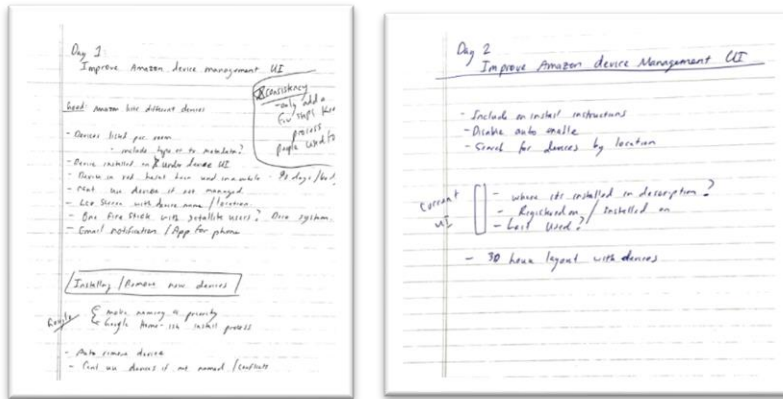 Day 1
Improve Amazon device management UI
Good: Amazon like different devices
* Consistency
- only add a
few steps
process
people used to
- Devices listed per room
- include type or to metadata?
- Device installed on under device UI
- Device in red hasnt been used in awhile - 90 days / bad
- Cant use device if not managed
- screen with device name / location
- One Fire Stick with satellite users? system
- Email notification / App for phone
Installing / Remove new devices
Google
make naming a priority
Google Home-ish install process
- Auto remove device
- Cant use devices if not named / conflicts
Day 2
Improve Amazon device Management UI
- Include on install instructions
- Disable auto
- Search for devices by location
Current
UI
- where its installed in description?
- Registered on / Installed on
- Last Used?
- 3D house layout with devices